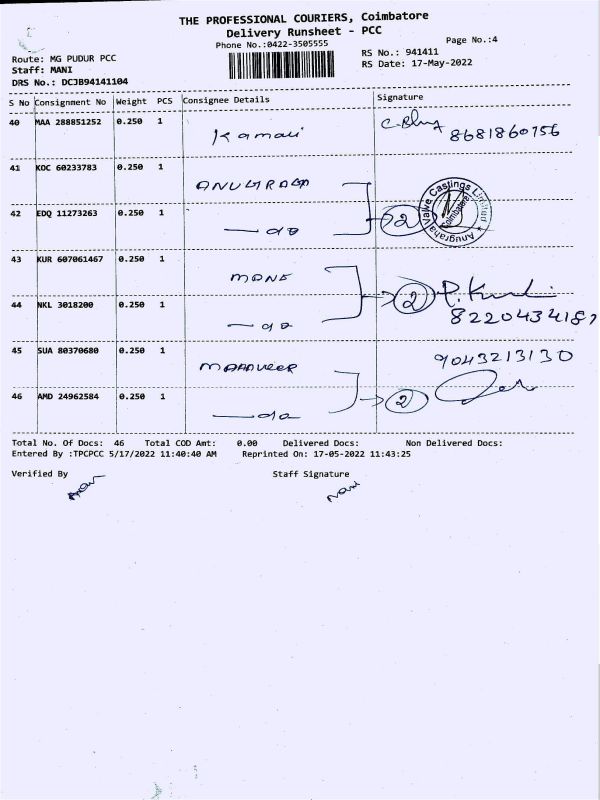 THE PROFESSIONAL COURIERS, Coimbatore
Delivery Runsheet - PCC
Phone No.:0422-3505555
Page No.:4
Route: MG PUDUR PCC
RS No.: 941411
Staff: MANI
RS Date: 17-May-2022
DRS No.: DCJB94141104
S No Consignment No Weight PCS Consignee Details Signature
40 MAA 288851252 0.250 1 Kamali
8681860756
41 KOC 60233783 0.250 1 ANUGRAGA
42 EDQ 11273263 0.250 1 do 2
Anugraha Valve Castings Limited
Coimbatore
43 KUR 607061467 0.250 1
44 NKL 3018200 0.250 1 do 2
8220434187
45 SUA 80370680 0.250 1
9043213130
46 AMD 24962584 0.250 1 do 2
Total No. Of Docs: 46 Total COD Amt: 0.00 Delivered Docs: Non Delivered Docs:
Entered By :TPCPCC 5/17/2022 11:40:40 AM Reprinted On: 17-05-2022 11:43:25
Verified By Staff Signature
Mani